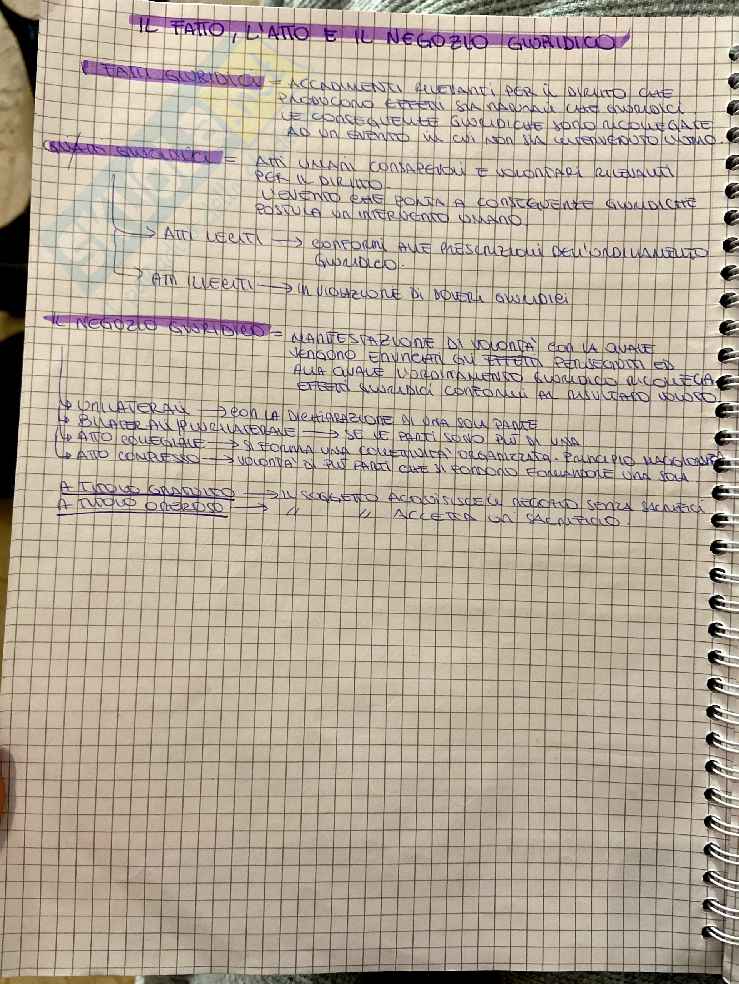 IL FATTO, L'ATTO E IL NEGOZIO GIURIDICO
I FATTI GIURIDICI = ACCADIMENTI RILEVANTI PER IL DIRITTO CHE
PRODUCONO EFFETTI SIA NATURALI CHE GIURIDICI
LE CONSEGUENZE GIURIDICHE SONO RICOLLEGATE
AD UN EVENTO IN CUI NON SIA INTERVENUTO L'UOMO.
GLI ATTI GIURIDICI = ATTI UMANI CONSAPEVOLI E VOLONTARI RILEVANTI
PER IL DIRITTO.
L'EVENTO CHE PORTA A CONSEGUENZE GIURIDICHE
POSTULA UN INTERVENTO UMANO
→ ATTI LECITI → CONFORMI ALLE PRESCRIZIONI DELL'ORDINAMENTO
GIURIDICO.
→ ATTI ILLECITI → IN VIOLAZIONE DI DOVERI GIURIDICI
IL NEGOZIO GIURIDICO = MANIFESTAZIONE DI VOLONTÀ CON LA QUALE
VENGONO ENUNCIATI GLI EFFETTI PERSEGUITI ED
ALLA QUALE L'ORDINAMENTO GIURIDICO RICOLLEGA
EFFETTI GIURIDICI CONFORMI AL RISULTATO VOLUTO
→ UNILATERALI → CON LA DICHIARAZIONE DI UNA SOLA PARTE
→ BILATERALI/PLURILATERALE → SE LE PARTI SONO PIÙ DI UNA
→ ATTO COLLEGIALE → SI FORMA UNA COLLETTIVITÀ ORGANIZZATA. PRINCIPIO MAGGIORITÀ
→ ATTO COMPLESSO → VOLONTÀ DI PIÙ PARTI CHE SI FONDONO FORMANDONE UNA SOLA
A TITOLO GRATUITO → IL SOGGETTO ACQUISISCE IL NEGOZIO SENZA SACRIFICI
A TITOLO ONEROSO → " " ACCETTA UN SACRIFICIO.